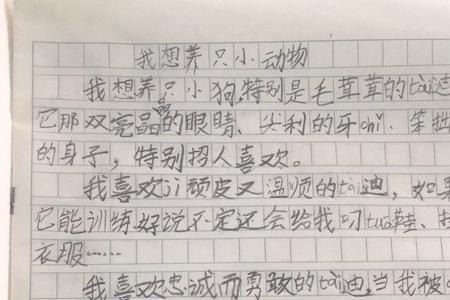 我想养只小动物
我想养只小狗,特别是毛茸茸的tài迪
它那双亮晶晶的眼睛、尖利的牙chǐ、笨拙
的身子，特别招人喜欢。
我喜欢jì顽皮又温顺的tài迪，如果
它能训练好说不定还会给我叼tuō鞋、
衣服……
我喜欢忠诚而勇敢的tài迪,当我被